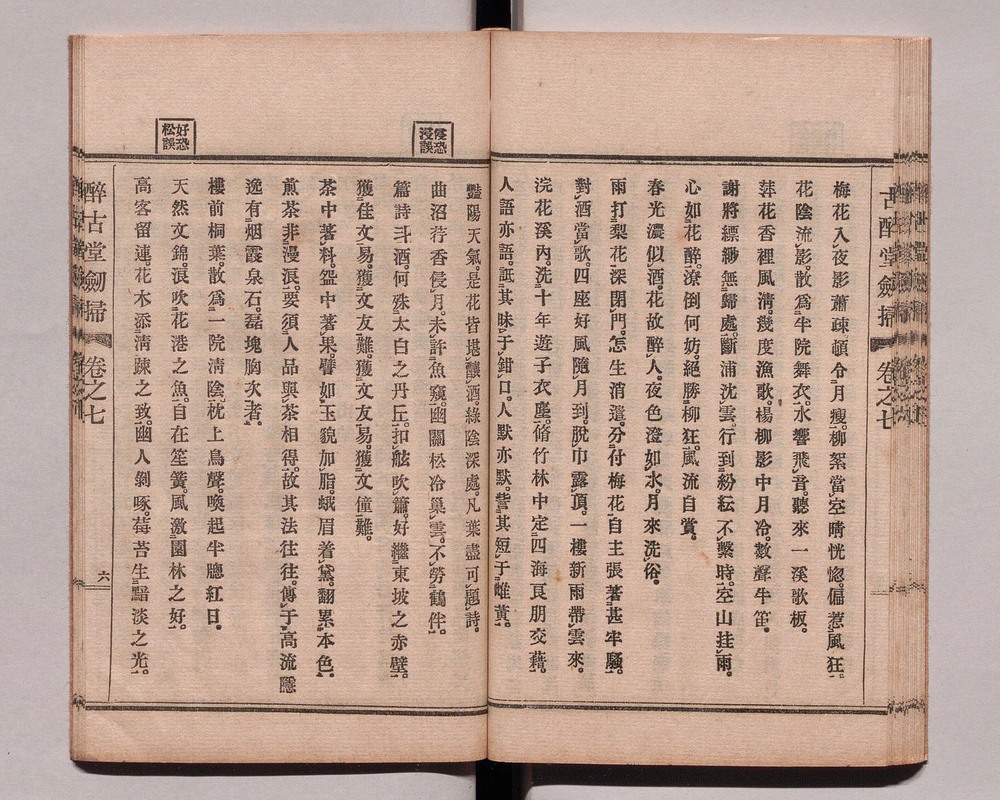 古醉堂劍掃 卷之七
梅花入夜影蕭疎頓令月瘦。柳絮當空晴恍惚。偏惹風狂。
花陰流影。散爲半院舞衣。水響飛音。聽來一溪歌板。
萍花香裡風淸。幾度漁歌。楊柳影中月冷。數聲牛笛。
謝將縹緲無歸處。斷浦沈雲。行到紛紜不繫時。空山挂雨。
心如花醉。潦倒何妨。絕勝柳狂。風流自賞。
春光濃似酒。花故醉人。夜色澄如水。月來洗俗。
雨打梨花深閉門。怎生消遣。分付梅花自主張。著甚牢騷。
對酒當歌。四座好風隨月到。脫巾露頂。一樓新雨帶雲來。
浣花溪內。洗十年遊子衣塵。脩竹林中。定四海良朋交藉。
人語亦語。詆其昧于鉗口。人默亦默。訾其短于雌黃。
侵恐
浸誤
豔陽天氣。是花皆堪釀酒。綠陰深處。凡葉盡可題詩。
曲沼荇香侵月。未許魚窺。幽關松冷巢雲。不勞鶴伴。
篇詩斗酒。何殊太白之丹丘。扣舷吹簫。好繼東坡之赤壁。
獲佳文易。獲文友難。獲文友易。獲文僮難。
茶中著料。盌中著果。譬如玉貌加脂。蛾眉着黛。翻累本色。
煎茶非漫浪。要須人品與茶相得。故其法往往傳于高流隱
逸有烟霞泉石。磊塊胸次者。
樓前桐葉。散爲一院淸陰。枕上鳥聲。喚起半牕紅日。
天然文錦。浪吹花港之魚。自在笙簧。風激園林之好。
好恐
松誤
高客留連。花木添淸踈之致。幽人剝啄。莓苔生黯淡之光。
醉古堂劍掃 卷之七
六